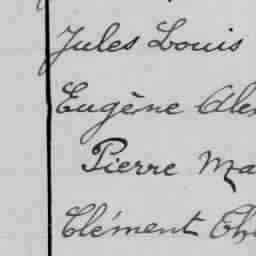 Jules Louis
Eugène Alex
Pierre Ma
Clément Th